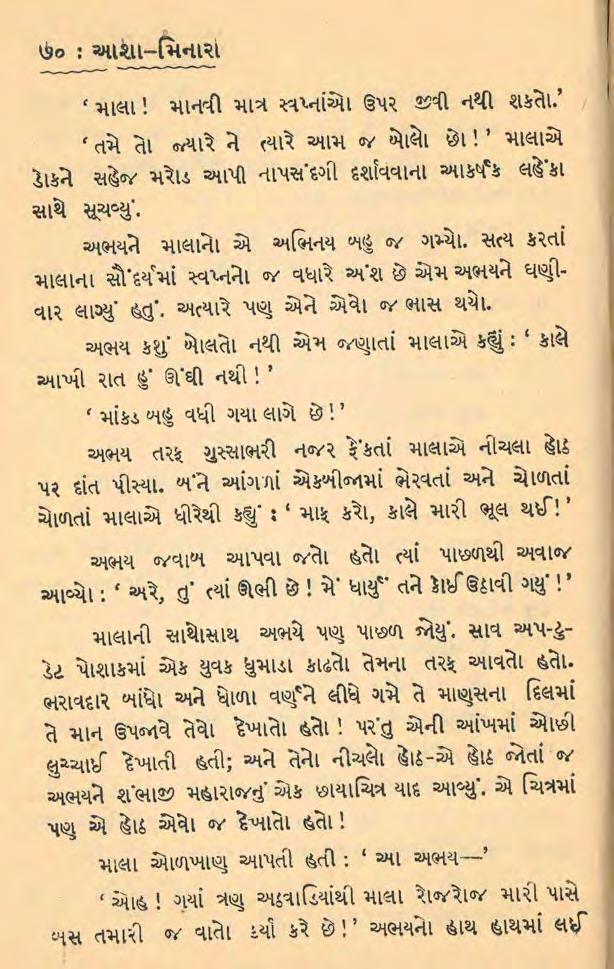 ૭૦ : આશા–મિનારા
‘ માલા ! માનવી માત્ર સ્વપ્નાંઓ ઉપર જીવી નથી શકતો.’
‘ તમે તો જ્યારે ને ત્યારે આમ જ બોલો છો ! ’ માલાએ
ડોકને સહેજ મરોડ આપી નાપસંદગી દર્શાવવાના આકર્ષક લહેંકા
સાથે સૂચવ્યું.
અભયને માલાનો એ અભિનય બહુ જ ગમ્યો. સત્ય કરતાં
માલાના સૌંદર્યમાં સ્વપ્નનો જ વધારે અંશ છે એમ અભયને ઘણી-
વાર લાગ્યું હતું. અત્યારે પણ એને એવો જ ભાસ થયો.
અભય કશું બોલતો નથી એમ જણાતાં માલાએ કહ્યું : ‘ કાલે
આખી રાત હું ઊંઘી નથી ! ’
‘ માંકડ બહુ વધી ગયા લાગે છે ! ’
અભય તરફ ગુસ્સાભરી નજર ફેંકતાં માલાએ નીચલા હોઠ
પર દાંત પીસ્યા. બંને આંગળાં એકબીજામાં ભેરવતાં અને ચોળતાં
ચોળતાં માલાએ ધીરેથી કહ્યું : ‘ માફ કરો, કાલે મારી ભૂલ થઈ ! ’
અભય જવાબ આપવા જતો હતો ત્યાં પાછળથી અવાજ
આવ્યો : ‘ અરે, તું ત્યાં ઊભી છે ! મેં ધાર્યું તને કોઈ ઉઠાવી ગયું ! ’
માલાની સાથોસાથ અભયે પણ પાછળ જોયું. સાવ અપ-ટુ-
ડેટ પોશાકમાં એક યુવક ધુમાડા કાઢતો તેમના તરફ આવતો હતો.
ભરાવદાર બાંધો અને ધોળા વર્ણને લીધે ગમે તે માણસના દિલમાં
તે માન ઉપજાવે તેવો દેખાતો હતો ! પરંતુ એની આંખમાં ઓછી
લુચ્ચાઈ દેખાતી હતી; અને તેનો નીચલો હોઠ–એ હોઠ જોતાં જ
અભયને શંભાજી મહારાજનું એક છાયાચિત્ર યાદ આવ્યું. એ ચિત્રમાં
પણ એ હોઠ એવો જ દેખાતો હતો !
માલા ઓળખાણ આપતી હતી : ‘ આ અભય—’
‘ ઓહ ! ગયાં ત્રણ અઠવાડિયાંથી માલા રોજરોજ મારી પાસે
બસ તમારી જ વાતો કર્યા કરે છે ! ’ અભયનો હાથ હાથમાં લઈ